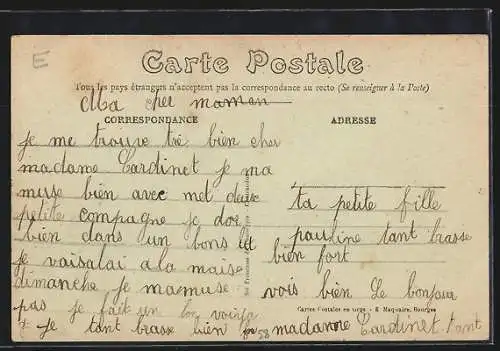 E
Carte Postale
Tous les pays étrangers n'acceptent pas la correspondance au recto (Se renseigner à la Poste)
Ma cher maman
CORRESPONDANCE
ADRESSE
je me trouve trè bien cher
madame Cardinet je ma
muse bien avec met deux
petite compagne je dor
bien dans un bons lit
je vaisalai a la maise
dimanche je mamuse
pas je fait un voinja
je tant brasse bien for
ta petite fille
pauline tant brasse
bien fort
vois bien Le bonjour
Cartes Postales en gros - E. Maquaire, Bourges
madame Cardinet tant